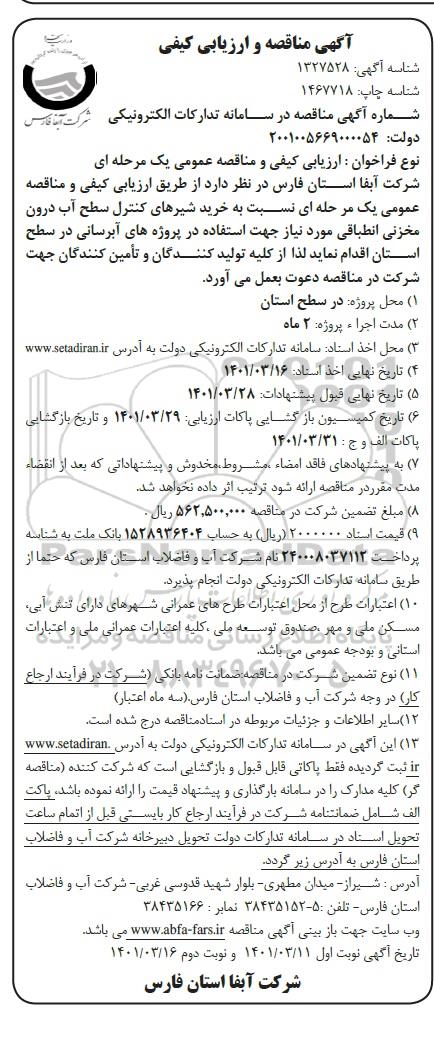 آگهی مناقصه و ارزیابی کیفی
شناسه آگهی: ۱۳۲۷۵۲۸
شناسه چاپ: ۱۴۶۷۷۱۸
شرکت آبفا فارس
شماره آگهی مناقصه در سامانه تدارکات الکترونیکی
دولت: ۲۰۰۱۰۰۵۶۶۹۰۰۰۰۵۴
نوع فراخوان : ارزیابی کیفی و مناقصه عمومی یک مرحله ای
شرکت آبفا استان فارس در نظر دارد از طریق ارزیابی کیفی و مناقصه
عمومی یک مر حله ای نسبت به خرید شیرهای کنترل سطح آب درون
مخزنی انطباقی مورد نیاز جهت استفاده در پروژه های آبرسانی در سطح
استان اقدام نماید لذا از کلیه تولید کنندگان و تأمین کنندگان جهت
شرکت در مناقصه دعوت بعمل می آورد.
۱) محل پروژه: در سطح استان
۲) مدت اجرا ء پروژه: ۲ ماه
۳) محل اخذ اسناد: سامانه تدارکات الکترونیکی دولت به آدرس www.setadiran.ir
۴) تاریخ نهایی اخذ اسناد: ۱۴۰۱/۰۳/۱۶
۵) تاریخ نهایی قبول پیشنهادات: ۱۴۰۱/۰۳/۲۸
۶) تاریخ کمیسیون باز گشایی پاکات ارزیابی: ۱۴۰۱/۰۳/۲۹ و تاریخ بازگشایی
پاکات الف و ج : ۱۴۰۱/۰۳/۳۱
۷) به پیشنهادهای فاقد امضاء ،مشروط،مخدوش و پیشنهاداتی که بعد از انقضاء
مدت مقرردر مناقصه ارائه شود ترتیب اثر داده نخواهد شد.
۸) مبلغ تضمین شرکت در مناقصه ۵۶۲,۵۰۰,۰۰۰ ریال .
۹) قیمت اسناد ۲۰۰۰۰۰۰ (ریال) به حساب ۱۵۲۸۹۳۶۴۰۴ بانک ملت به شناسه
پرداخت ۲۴۰۰۰۸۰۳۷۱۱۲ نام شرکت آب و فاضلاب استان فارس که حتما از
طریق سامانه تدارکات الکترونیکی دولت انجام پذیرد.
۱۰) اعتبارات طرح از محل اعتبارات طرح های عمرانی شهرهای دارای تنش آبی،
مسکن ملی و مهر ،صندوق توسعه ملی ،کلیه اعتبارات عمرانی ملی و اعتبارات
استانی و بودجه عمومی می باشد.
۱۱) نوع تضمین شرکت در مناقصه:ضمانت نامه بانکی (شرکت در فرآیند ارجاع
کار) در وجه شرکت آب و فاضلاب استان فارس.(سه ماه اعتبار)
۱۲)سایر اطلاعات و جزئیات مربوطه در اسنادمناقصه درج شده است.
۱۳) این آگهی در سامانه تدارکات الکترونیکی دولت به آدرس www.setadiran.
ir ثبت گردیده فقط پاکاتی قابل قبول و بازگشایی است که شرکت کننده (مناقصه
گر) کلیه مدارک را در سامانه بارگذاری و پیشنهاد قیمت را ارائه نموده باشد، پاکت
الف شامل ضمانتنامه شرکت در فرآیند ارجاع کار بایستی قبل از اتمام ساعت
تحویل اسناد در سامانه تدارکات دولت تحویل دبیرخانه شرکت آب و فاضلاب
استان فارس به آدرس زیر گردد.
آدرس : شیراز- میدان مطهری- بلوار شهید قدوسی غربی- شرکت آب و فاضلاب
استان فارس- تلفن :۵-۳۸۴۳۵۱۵۲ نمابر : ۳۸۴۳۵۱۶۶
وب سایت جهت باز بینی آگهی مناقصه www.abfa-fars.ir می باشد.
تاریخ آگهی نوبت اول ۱۴۰۱/۰۳/۱۱ و نوبت دوم ۱۴۰۱/۰۳/۱۶
شرکت آبفا استان فارس